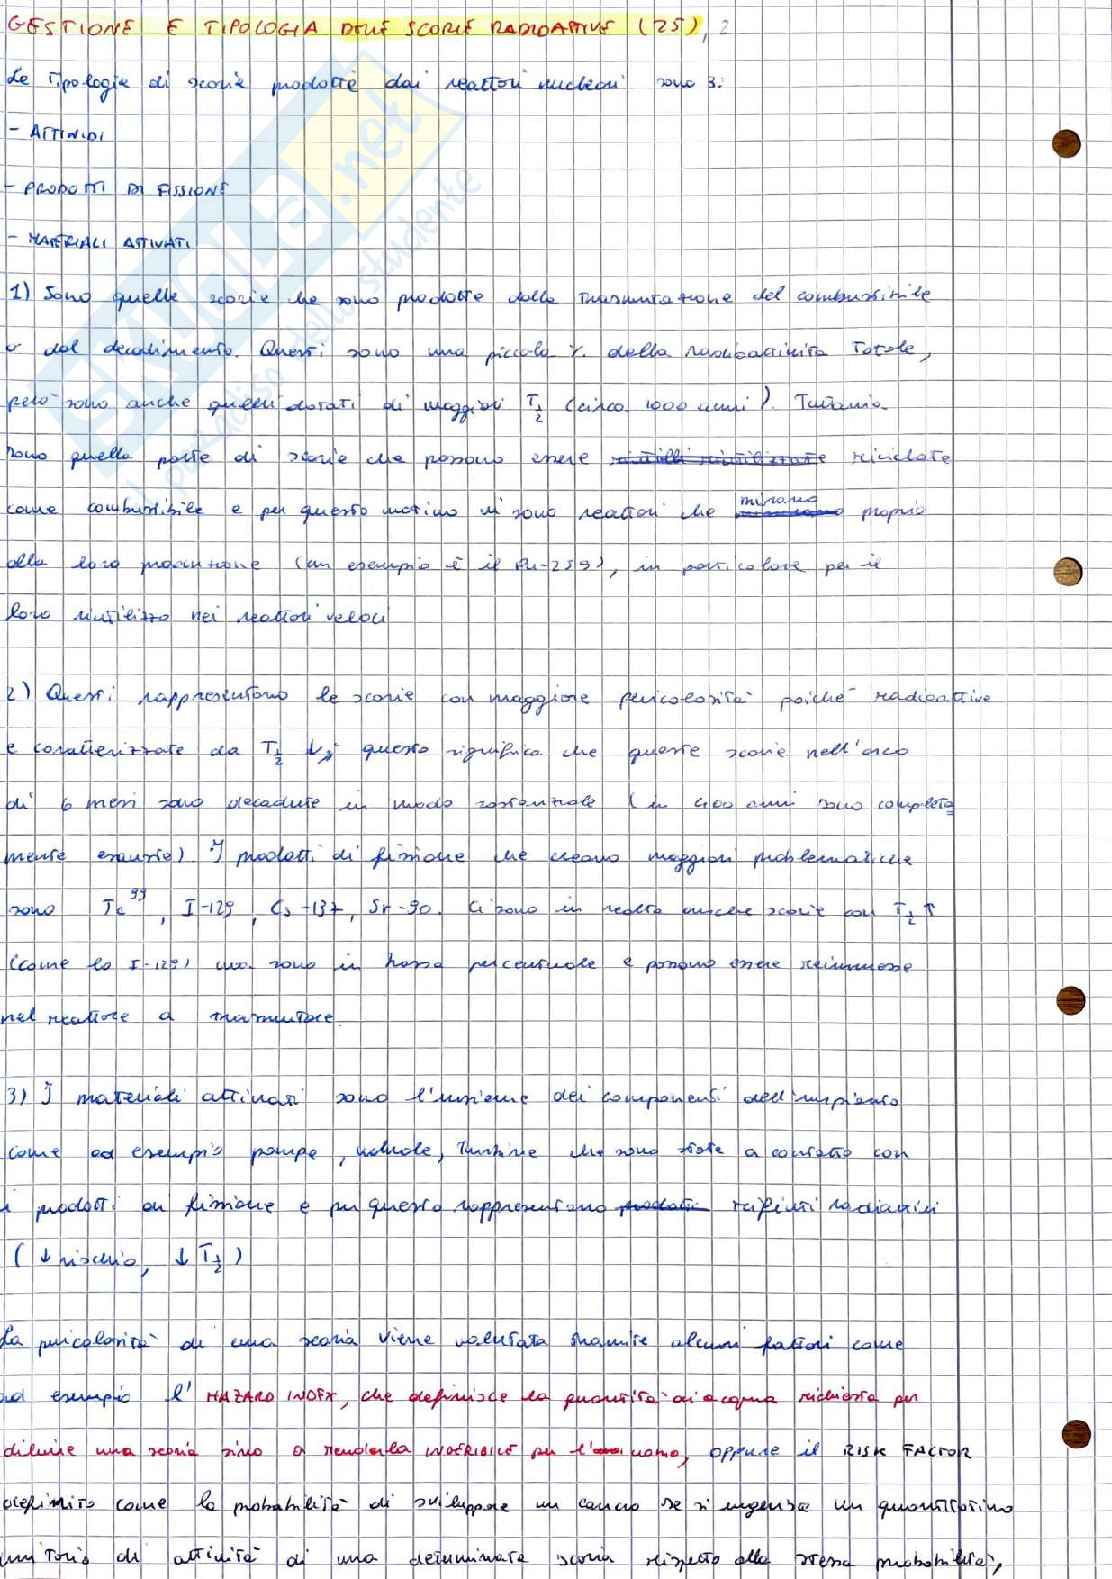 GESTIONE E TIPOLOGIA DELLE SCORIE RADIOATTIVE (25), 2
Le Tipologie di scorie prodotte dai reattori nucleari sono 3:
- ATTINIDI
- PRODOTTI DI FISSIONE
- MATERIALI ATTIVATI
1) Sono quelle scorie che sono prodotte dalla Trasmutazione del combustibile
o dal decadimento. Questi sono una piccola % della radioattività Totale,
però sono anche quelli dotati di maggiori T½ (circa 1000 anni). Tuttavia
sono quella parte di scorie che possono essere riciclate
come combustibile e per questo motivo vi sono reattori che mirano proprio
alla loro produzione (un esempio è il Pu-239), in particolare per il
loro riutilizzo nei reattori veloci
2) Questi rappresentano le scorie con maggiore pericolosità poiché radioattive
e caratterizzate da T½ ↓, questo significa che queste scorie nell'arco
di 6 mesi sono decadute in modo sostanziale (in 400 anni sono completa
mente esaurite) I prodotti di fissione che creano maggiori problematiche
sono Tc⁹⁹, I-129, Cs-137, Sr-90. Ci sono in realtà anche scorie con T½ ↑
(come lo I-129) ma sono in bassa percentuale e possono essere reimmesse
nel reattore a trasmutare.
3) I materiali attivati sono l'insieme dei componenti dell'impianto
come ad esempio pompe, valvole, Turbine che sono state a contatto con
i prodotti di fissione e per questo rappresentano rifiuti radioattivi
(↓ rischio, ↓ T½)
La pericolosità di una scoria viene valutata tramite alcuni fattori come
ad esempio l'HAZARD INDEX, che definisce la quantità di acqua richiesta per
diluire una scoria sino a renderla INGERIBILE per l'uomo, oppure il RISK FACTOR
definito come la probabilità di sviluppare un cancro se si ingerisce un quantitativo
unitario di attività di una determinata scoria rispetto alla stessa probabilità,
SKUOLA.net
il paradiso dello studente